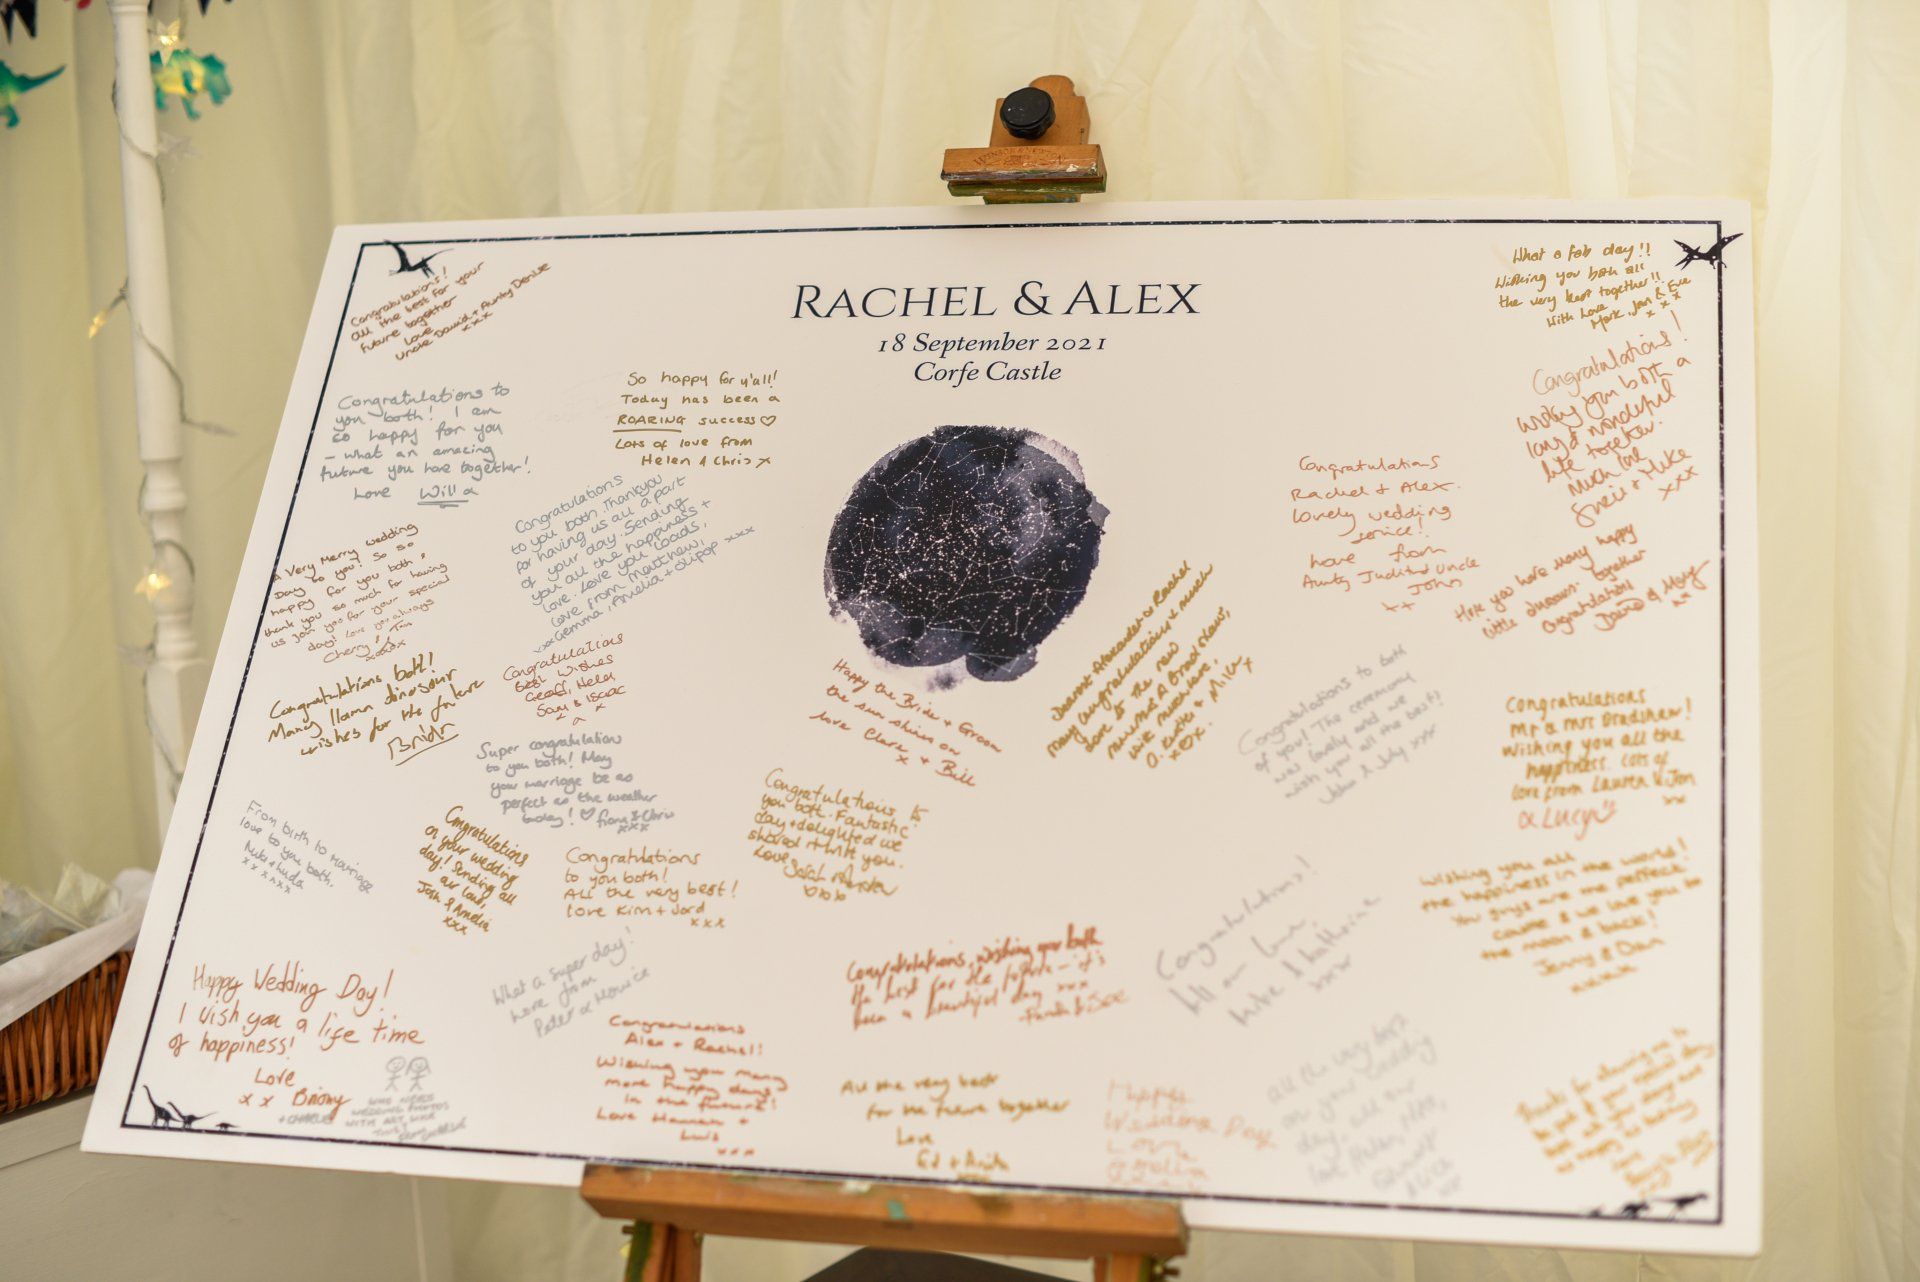 WINSOR & NEWTON
RACHEL & ALEX
18 September 2021
Corfe Castle
Congratulations!
all the best for your
future together
Love
Uncle David + Aunty Denise
xxx
What a fab day!!
Wishing you both all
the very best together!!
With Love
Mark, Jan & Eve
x x
Congratulations to
you both! I am
so happy for you
- what an amazing
future you have together!
Love Will x
So happy for y'all!
Today has been a
ROARING success ♡
Lots of love from
Helen & Chris x
Congratulations!
wishing you both a
long & wonderful
life together.
Much love
+ Mike
xxx
Congratulations
Rachel & Alex.
Lovely wedding
service!
Love from
Aunty Judith & Uncle
John
xx
Congratulations
to you both. Thankyou
for having us all a part
of your day. Sending
you all the happiness +
love. Love you loads,
Love from Matthew,
xxx Gemma, Amelia + Olipop xxx
A Very Merry wedding
Day to you! So so
happy for you both &
thank you so much for having
us join you for your special
day! Love you always
Cherry &
xxxxx
Hope you have many happy
little dinosaurs together
Congratulations!
David & Mary
xx
Congratulations
Best Wishes
Geoff, Helen
Sam & Isaac
x x x
Congratulations both!
Many llama dinosaur
wishes for the future
Dearest Alexander & Rachel
Many Congratulations & much
love to the new
Mr & Mrs A Bradshaw,
with much love,
xOx.
Happy the Bride & Groom
the sun shines on
love Clare & Bill
x
Congratulations to both
of you! The ceremony
was lovely and we
wish you all the best!
John & July xxx
Congratulations
Mr & Mrs Bradshaw!
Wishing you all the
happiness. Lots of
love from Lauren & Jon
xx
x Lucy
Super congratulations
to you both! May
your marriage be as
perfect as the weather
today! ♡ Fiona & Chris
xxx
From birth to marriage
love to you both.
xxxxxx
Congratulations
on your wedding
day! Sending all
our love,
Josh & Amelia
xxx
Congratulations
to you both!
All the very best!
Love Kim + Jord
xxx
Congratulations to
you both. Fantastic
day + delighted we
shared it with you.
Love Sarah
xoxo
Wishing you all
the happiness in the world!
You guys are the perfect
couple & we love you to
the moon & back!
Jenny & Dan
xxxx
Congratulations!
All our love
Luke & Katherine
xxx
What a super day!
Love from
Peter &
Congratulations, wishing you both
the best for the future - it's
been a beautiful day xxx
& Joe
Happy Wedding Day!
I wish you a life time
of happiness!
Love
x x Briony
+ CHARLIE
WHO NEEDS
WEDDING PHOTOS
WITH ART LIKE
THIS!
Congratulations
Alex + Rachel!
Wishing you many
more happy days
in the future!
Love Hannah +
Luis
xxx
All the very best
for the future together
Love
Ed + Anita
Happy
Wedding Day
Love
All the very best
on your wedding
day, all our
love
xx
Thanks for allowing me to
be part of your special day